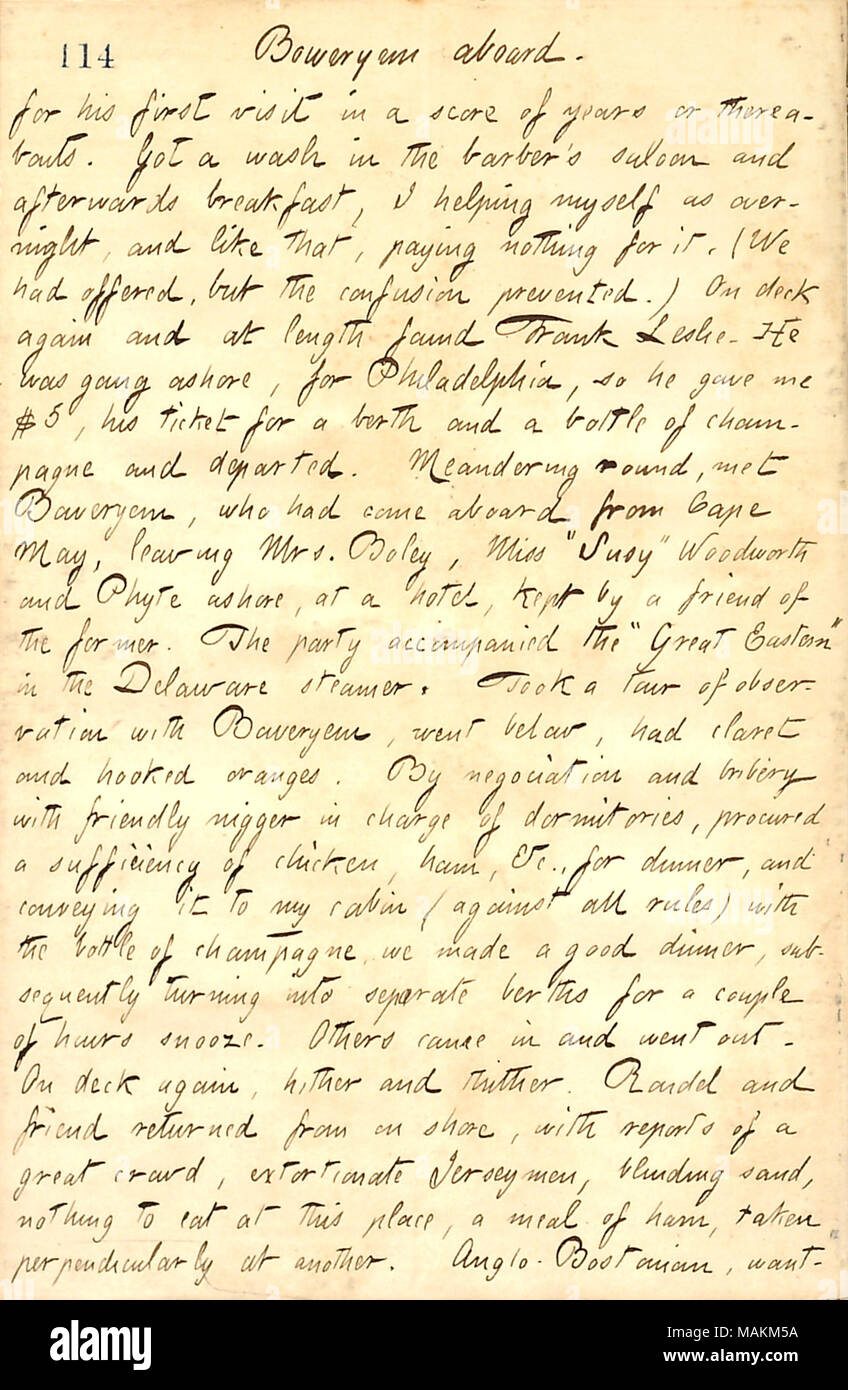 114 Boweryem aboard.
for his first visit in a score of years or therea-
bouts. Got a wash in the barber's saloon and
afterwards breakfast, I helping myself as over-
night, and like that, paying nothing for it. (We
had offered, but the confusion prevented.) On deck
again and at length found Frank Leslie. He
was going ashore, for Philadelphia, so he gave me
$5, his ticket for a berth and a bottle of cham-
pagne and departed. Meandering round, met
Boweryem, who had come aboard from Cape
May, leaving Mrs. Boley, Miss "Susy" Woodworth
and Phyte ashore, at a hotel, kept by a friend of
the former. The party accompanied the "Great Eastern"
in the Delaware steamer. Took a tour of obser-
vation with Boweryem, went below, had claret
and hooked oranges. By negociation and bribery
with friendly nigger in charge of dormitories, procured
a sufficiency of chicken, ham, &c., for dinner, and
conveying it to my cabin (against all rules) with
the bottle of champagne we made a good dinner, sub-
sequently turning into separate berths for a couple
of hours snooze. Others came in and went out.
On deck again, hither and thither. Roudel and
friend returned from on shore, with reports of a
great crowd, extortionate Jerseymen, blinding sand,
nothing to eat at this place, a meal of ham, taken
perpendicularly at another. Anglo-Bostonian, want-
alamy
Image ID: MAKM5A
www.alamy.com